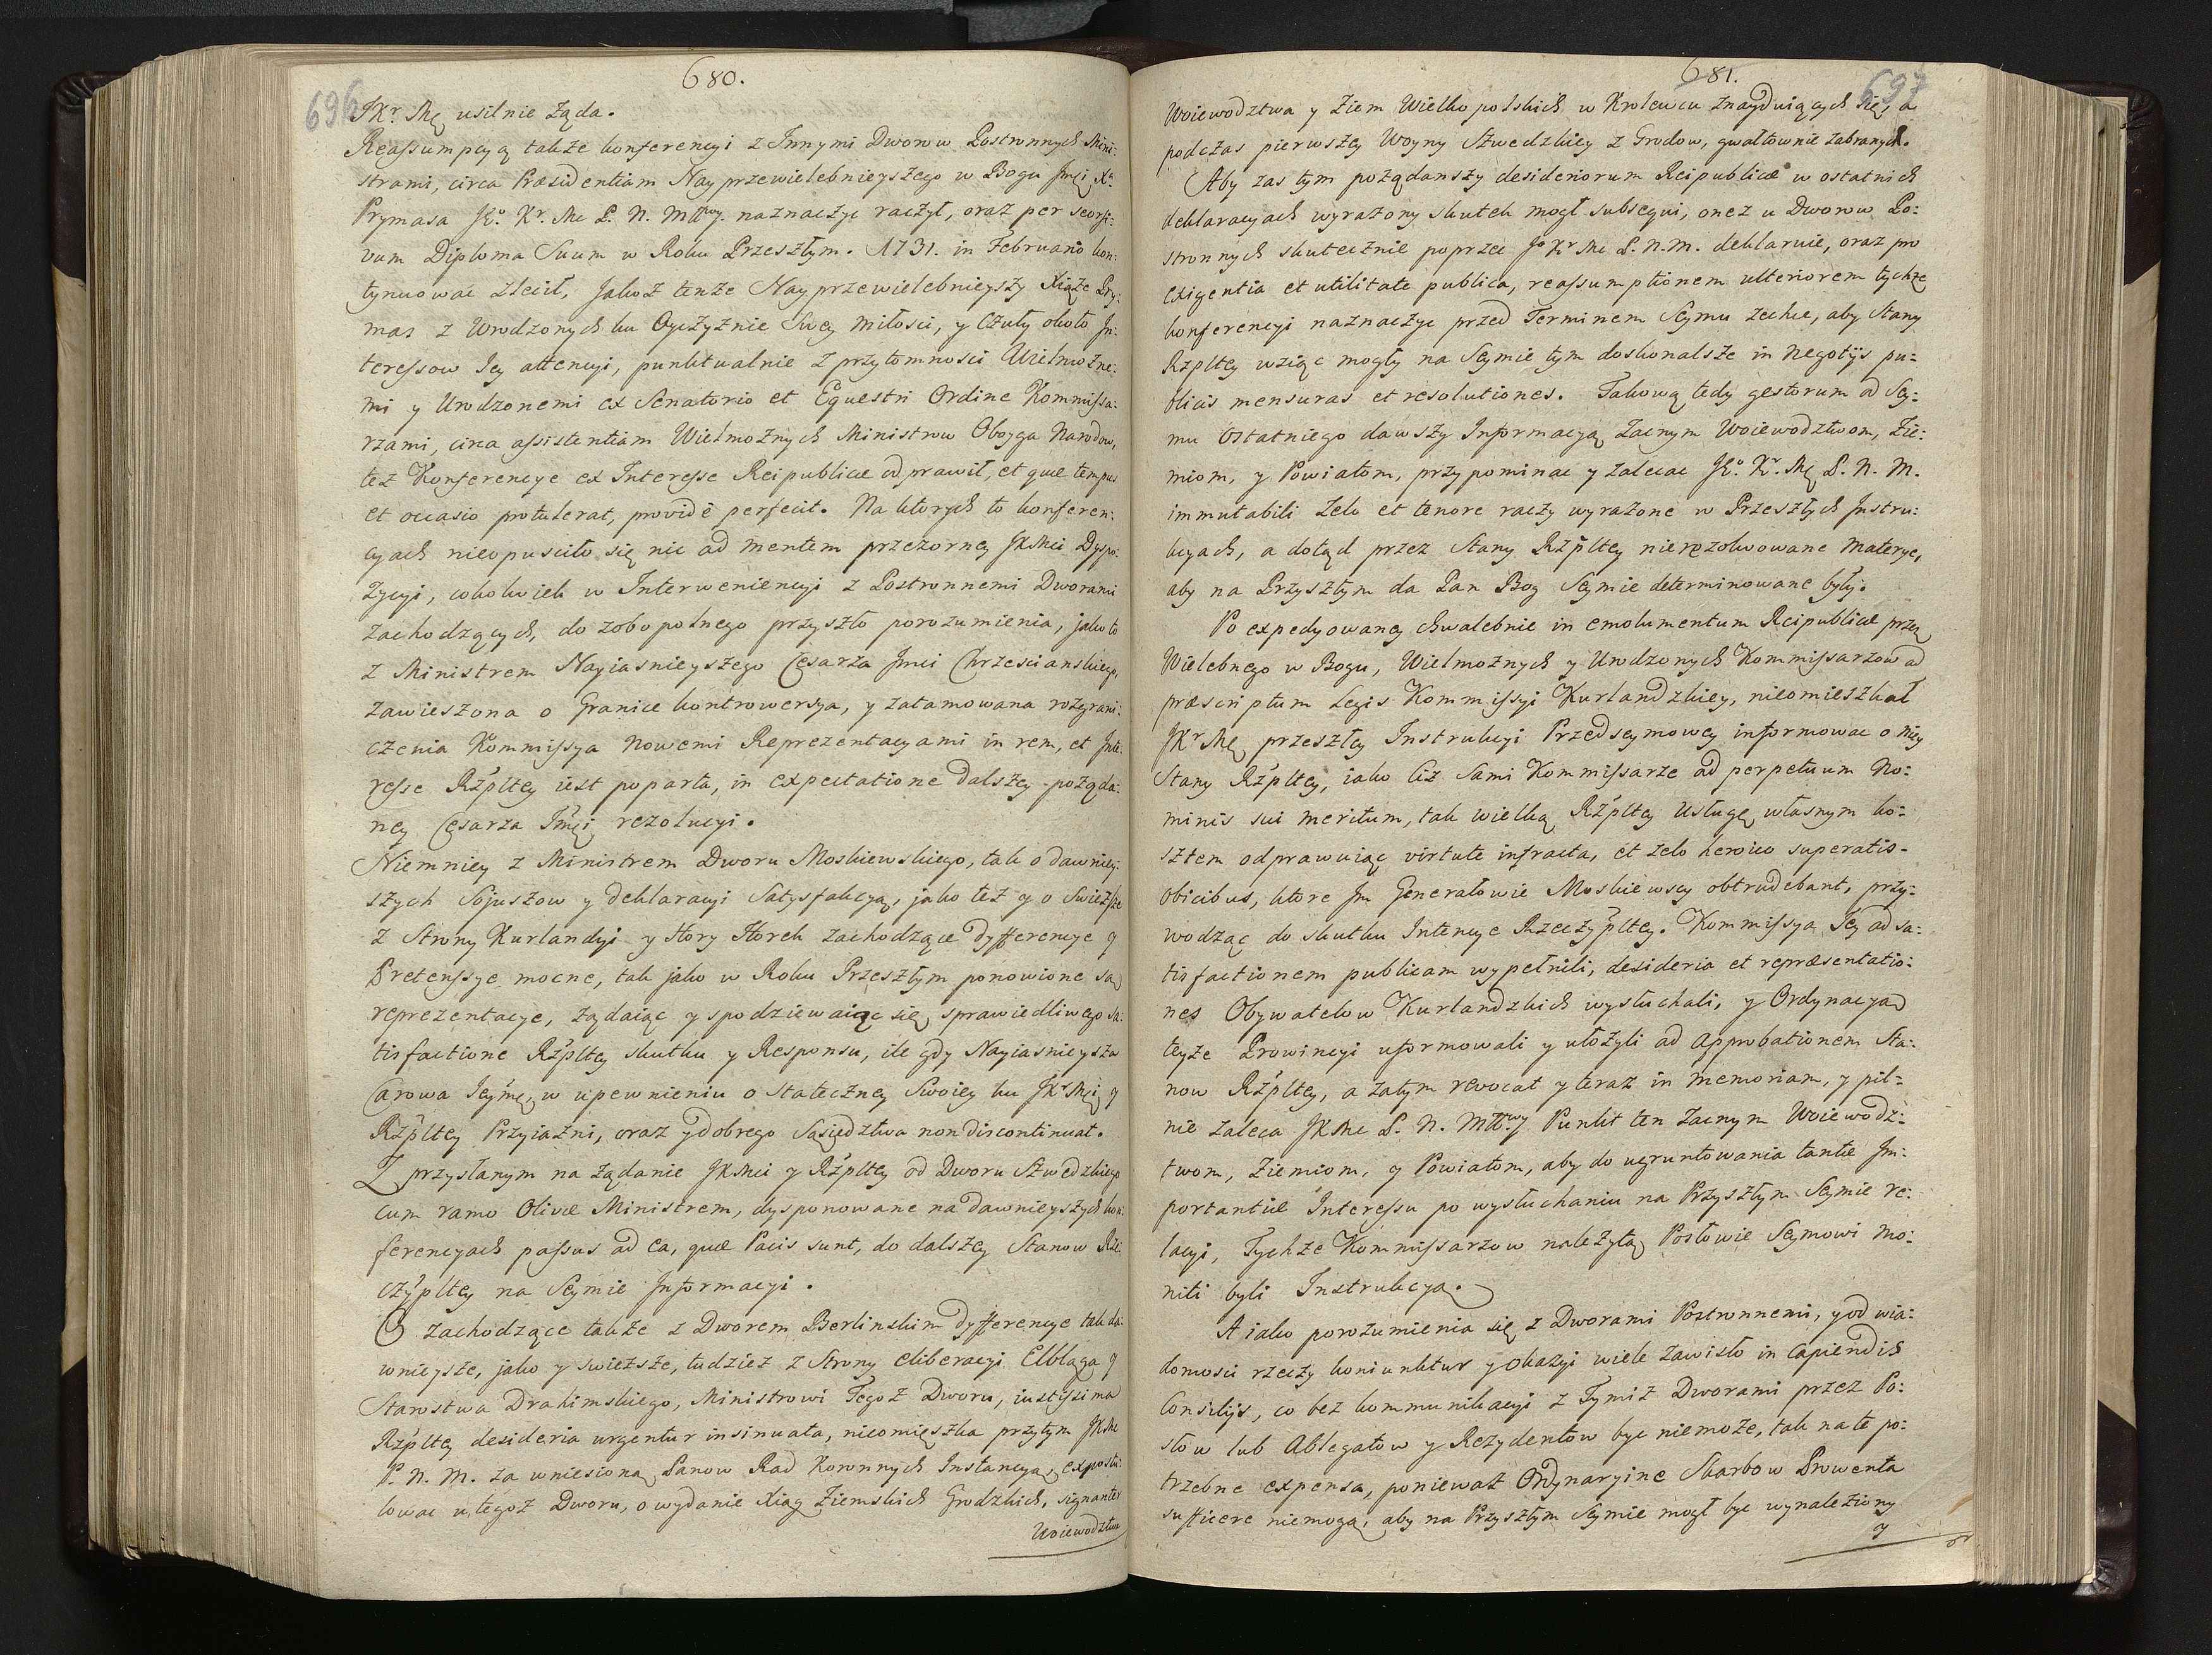 680.
696
JKr. Mę usilnie żąda.
Reassumpcyą także konferencyi z Innymi Dworow Postronnych Mini:
strami, circa Præsidentiam Nayprzewielebnieyszego w Bogu Jmci Xa.
Prymasa JKo. Kr. Mc P. N. Mttwy. naznaczyc raczył, oraz per seorsi:
vum Diploma Suum w Roku Przeszłym. 1731. in Februario kon:
tynuowac zlecił, Jakoż tenże Nayprzewielebnieyszy Xiąże Pry:
mas z Wrodzonych ku Oyczyznie Swey miłosci, y czuły około In:
teressow Jey attencyi, punktualnie z przytomnosci Wielmożne:
mi y Urodzonemi ex Senatorio et Equestri Ordine Kommissa:
rzami, circa assistentiam Wielmożnych Ministrow Oboyga Narodow,
też Konferencye ex Interesse Reipublicæ odprawił, et quæ tempus
et occasio protulerat, providè perfecit. Na ktorych to konferen:
cyach nieopusciło się nic ad mentem przezorney JKMci Dyspo:
zycyi, cokolwiek w Interweniencyi z Postronnemi Dworami
zachodzących, do zobopolnego przyszło porozumienia, jako to
z Ministrem Nayiasnieyszego Cesarza Jmci Chrzescianskiego,
zawieszona o Granice kontrowersya, y zatamowana rozgrani:
czenia Kommissya nowemi Reprezentacyami in rem, et Inte:
resse Rzpltey iest poparta, in expectatione dalszey pożąda:
ney Cesarza Jmci rezolucyi.
Niemniey z Ministrem Dworu Moskiewskiego, tak o dawniey:
szych Sojuszow y deklaracyi Satysfakcyą, jako też y o Swieższe
z Strony Kurlandyi y Hory Horek zachodzące dyfferencye y
Pretenssye mocne, tak jako w Roku Przeszłym ponowione są
reprezentacye, żądaiąc y spodziewaiąc się sprawiedliwego sa:
tisfactione Rzpltey skutku y Responsu, ile gdy Nayiasnieysza
Carowa Jeymc, w upewnieniu o Stateczney Swoiey ku JKrMci y
Rzpltey Przyiazni, oraz y dobrego Sąsiedztwa non discontinuat.
Z przysłanym na żądanie JKMci y Rzpltey od Dworu Szwedzkiego
cum ramo Olivæ Ministrem, dysponowane na dawnieyszych kon:
ferencyach passus ad ea, quæ Pacis sunt, do dalszey Stanow Rze:
czypltey na Seymie Informacyi.
O zachodzące także z Dworem Berlinskim dyfferencye tak da:
wnieysze, jako y swieższe, tudzież z Strony eliberacyi Elbląga y
Starostwa Drahimskiego, Ministrowi Tegoż Dworu, iustissima
Rzpltey desideria urgentur insinuata, nieomięszka przytym JKMc
P. N. M. za wniesioną Panow Rad Koronnych Instancyą, expostu:
lowac u tegoż Dworu, o wydanie Xiąg Ziemskich Grodzkich, signanter
Woiewodztwa
681.
697
Woiewodztwa y Ziem Wielkopolskich w Krolewcu znayduiących się, a
podczas pierwszey Woyny Szwedzkiey z Grodow, gwałtownie zabranych.
Aby zas tym pożądanszy desideriorum Reipublicæ w ostatnich
deklaracyach wyrażony skutek mogł subsequi, onez u Dworow Po:
stronnych skutecznie poprzec Jo Kr Mc P. N. M. deklaruie, oraz pro
exigentia et utilitate publica, reassumptionem ulteriorem tychże
konferencyi naznaczyc przed Terminem Seymu zechce, aby Stany
Rzpltey wziąc mogły na Seymie tym doskonalsze in negotijs pu:
blicis mensuras et resolutiones. Takową tedy gestorum od Sey:
mu Ostatniego dawszy Informacyą zacnym Woiewodztwom, Zie:
miom, y Powiatom, przypominac y zalecac JKo. Kr. Mc P. N. M.
immutabili zelo et tenore raczy wyrażone w Przeszłych Instru:
kcyach, a dotąd przez Stany Rzpltey nierezolwowane materye,
aby na Przyszłym da Pan Bog Seymie determinowane były.
Po expedyowaney chwalebnie in emolumentum Reipublicæ przez
Wielebnego w Bogu, Wielmożnych y Urodzonych Kommissarzow ad
præscriptum Legis Kommissyi Kurlandzkiey, nieomieszkał
JKrMc przeszłey Instrukcyi Przedseymowey informowac o niey
Stany Rzpltey, iako ciż Sami Kommissarze ad perpetuum No:
minis sui meritum, tak wielką Rzpltey usługę własnym ko:
sztem odprawuiąc virtute infracta, et zelo heroico superatis
obicibus, ktore Im Generałowie Moskiewscy obtrudebant, przy:
wodząc do skutku Intencye Rzeczypltey. Kommissyą Jey ad sa:
tisfactionem publicam wypełnili, desideria et repræsentatio:
nes Obywatelow Kurlandzkich wysłuchali, y Ordynacyą
teyże Prowincyi uformowali y ułożyli ad approbationem Sta:
now Rzpltey, a zatym revocat y teraz in memoriam, y pil:
nie zaleca JKMc P. N. Mttwy Punkt ten zacnym Woiewodz:
twom, Ziemiom, y Powiatom, aby do ugruntowania tantæ Im:
portantiæ Interessu po wysłuchaniu na Przyszłym Seymie re:
lacyi, Tychże Kommissarzow należytą Posłowie Seymowi mo:
niti byli Instrukcyą.
A iako porozumienia się z Dworami Postronnemi, y od wia:
domosci rzeczy koniunktur y okazyi wiele zawisło in capiendis
Consilijs, co bez kommunikacyi z Tymiż Dworami przez Po:
słow lub Ablegatow y Rezydentow byc niemoże, tak na te po:
trzebne expensa, ponieważ Ordynaryine Skarbow Prowenta
sufficere niemogą, aby na Przyszłym Seymie mogł byc wynaleziony
y